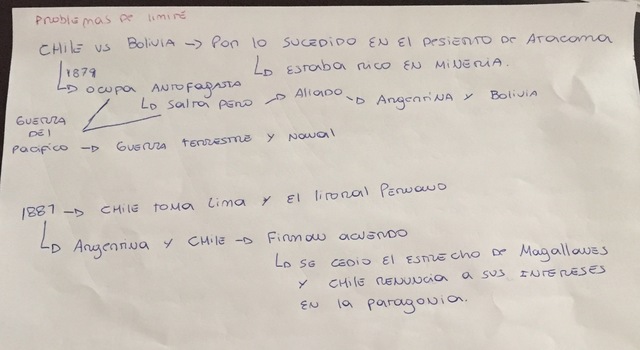 Problemas de limite
CHILE vs Bolivia → Por lo sucedido en el desierto de Atacama
1879 ↳ estaba rico en mineria.
↳ ocupa Antofagasta
↳ Salta Perú → Aliado → Argentina y Bolivia
GUERRA
DEl
Pacifico → Guerra terrestre y Naval
1881 → CHILE toma Lima y El litoral Peruano
↳ Argentina y CHILE → Firman acuerdo
↳ se cedio el estrecho de Magallanes
y CHILE renuncia a sus intereses
en la paragonia.